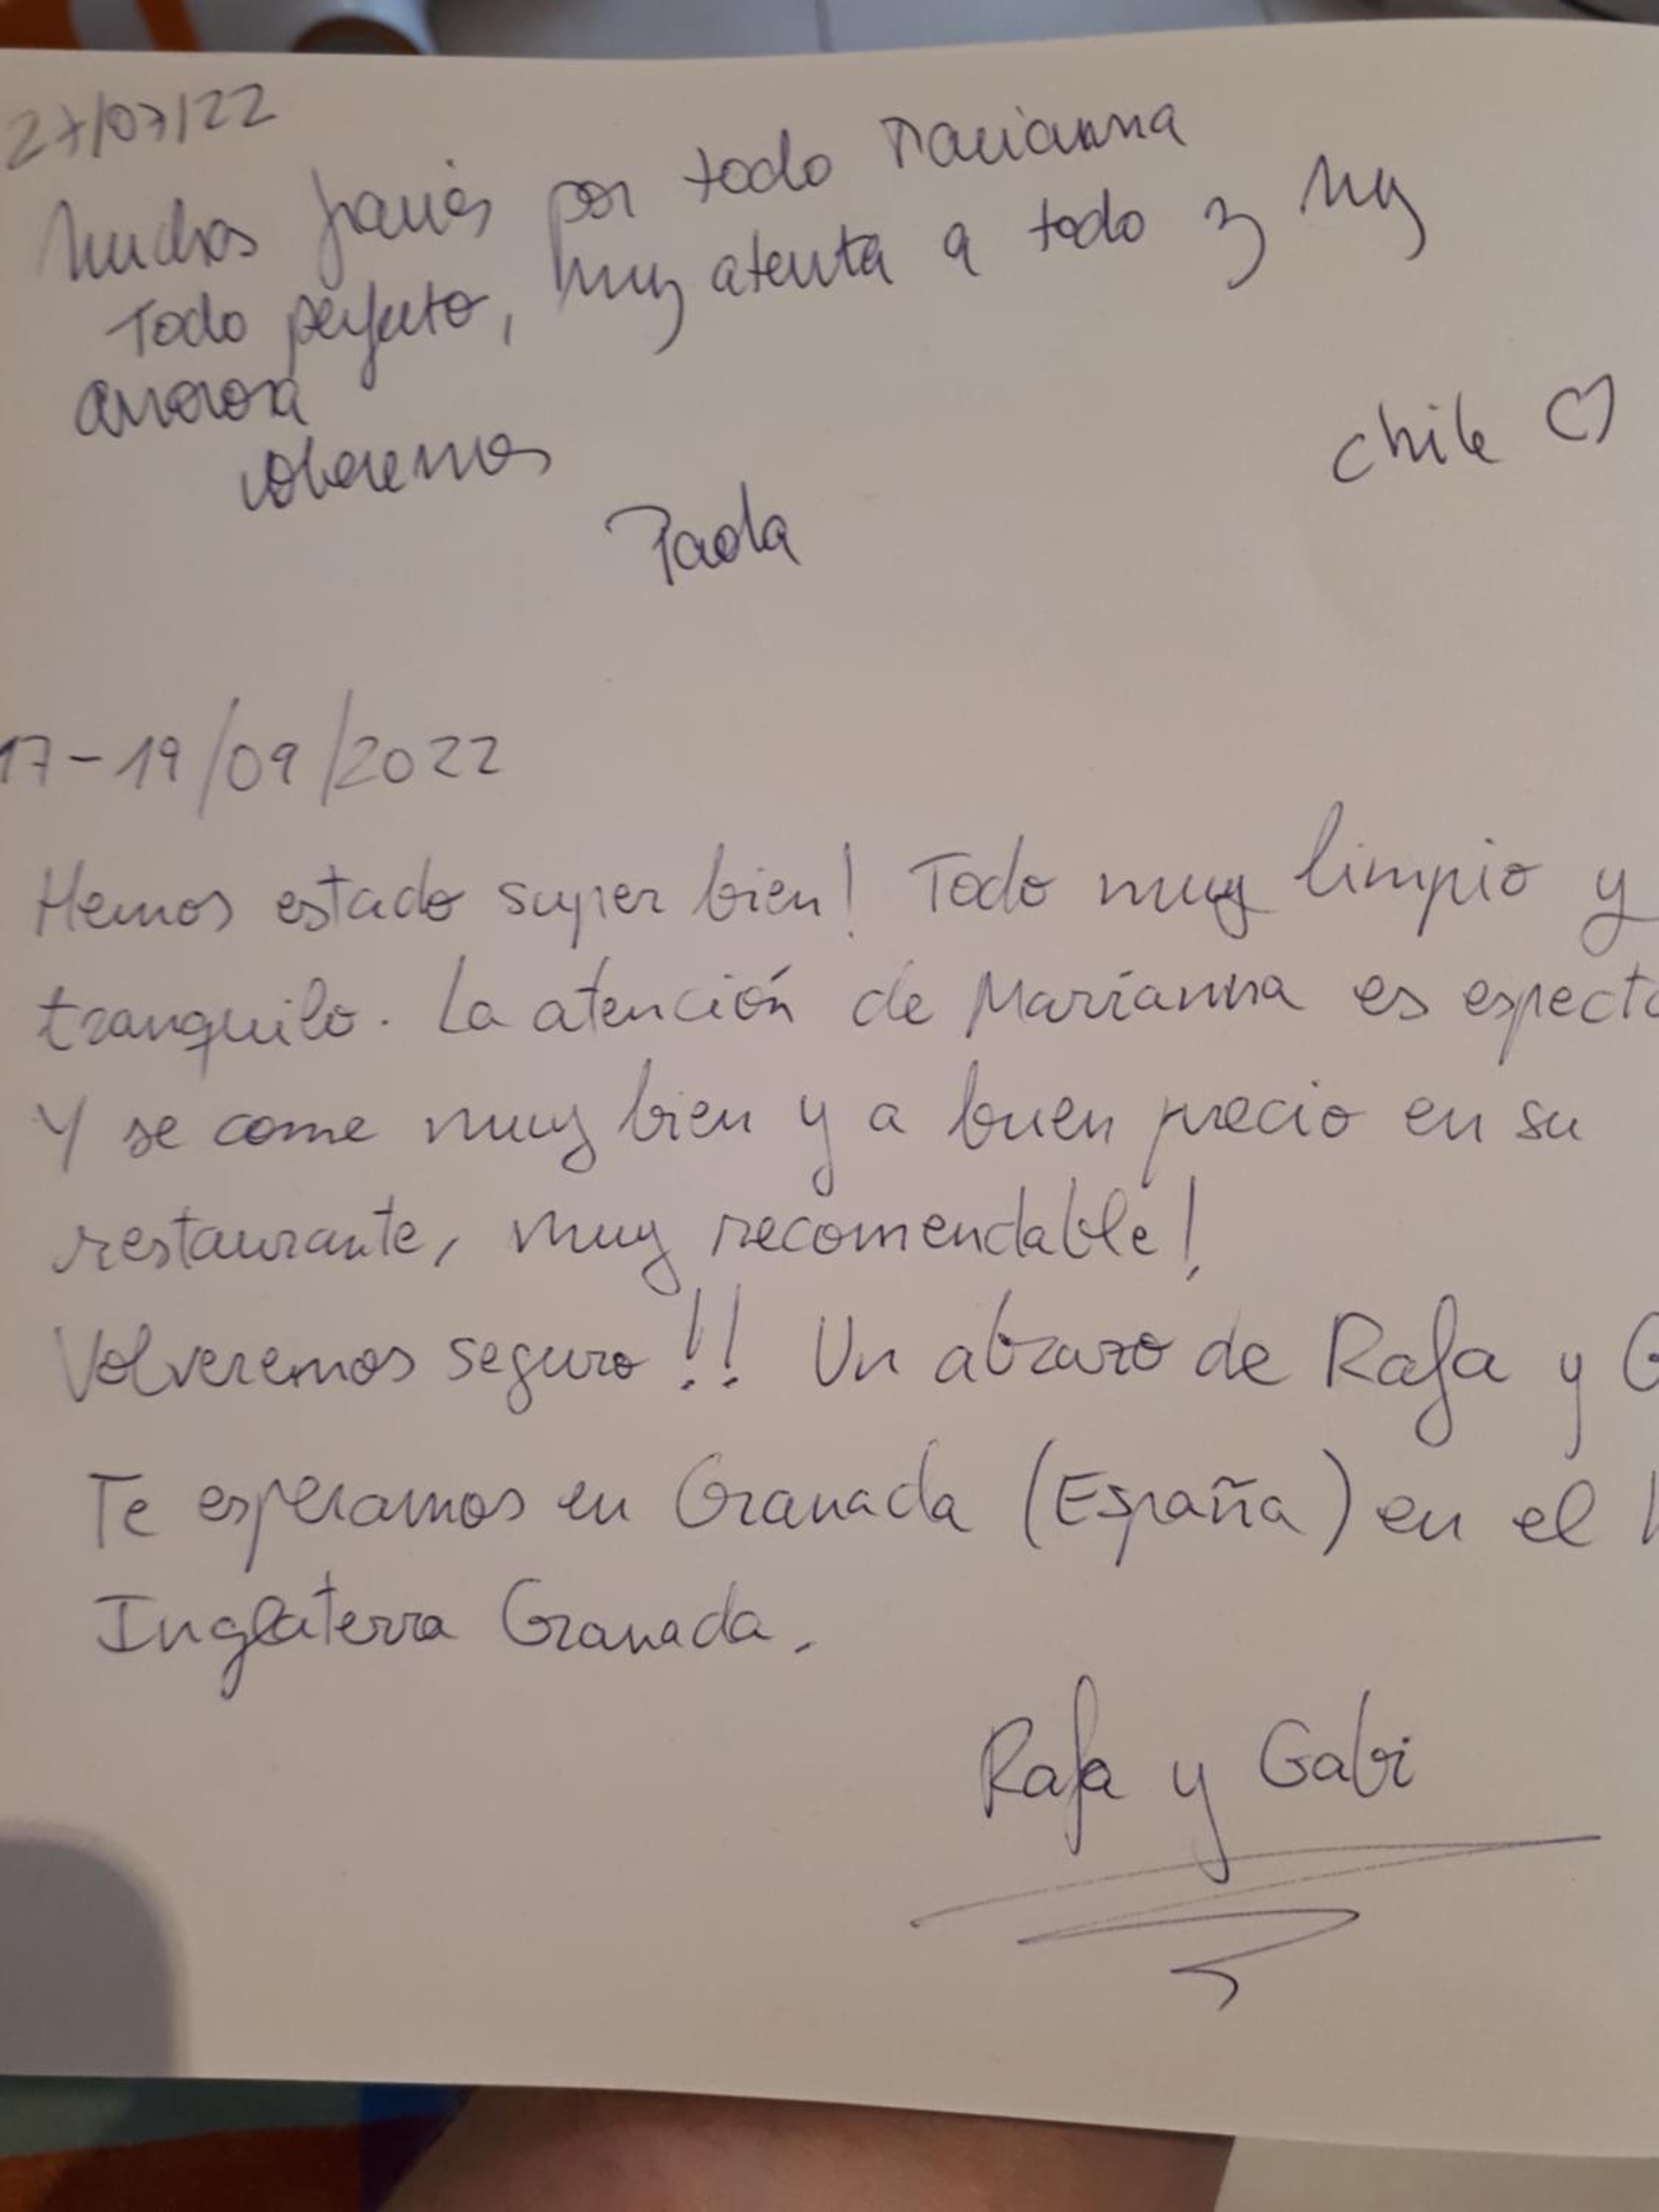 27/07/22
Muchas gracias por todo Marianna
Todo perfecto, muy atenta a todo y muy
amorosa
volveremos
chile ♡
Paola
17-19/09/2022
Hemos estado super bien! Todo muy limpio y
tranquilo. La atención de Marianna es especta
Y se come muy bien y a buen precio en su
restaurante, muy recomendable!
Volveremos seguro!! Un abrazo de Rafa y G
Te esperamos en Granada (España) en el
Inglaterra Granada.
Rafa y Gabi